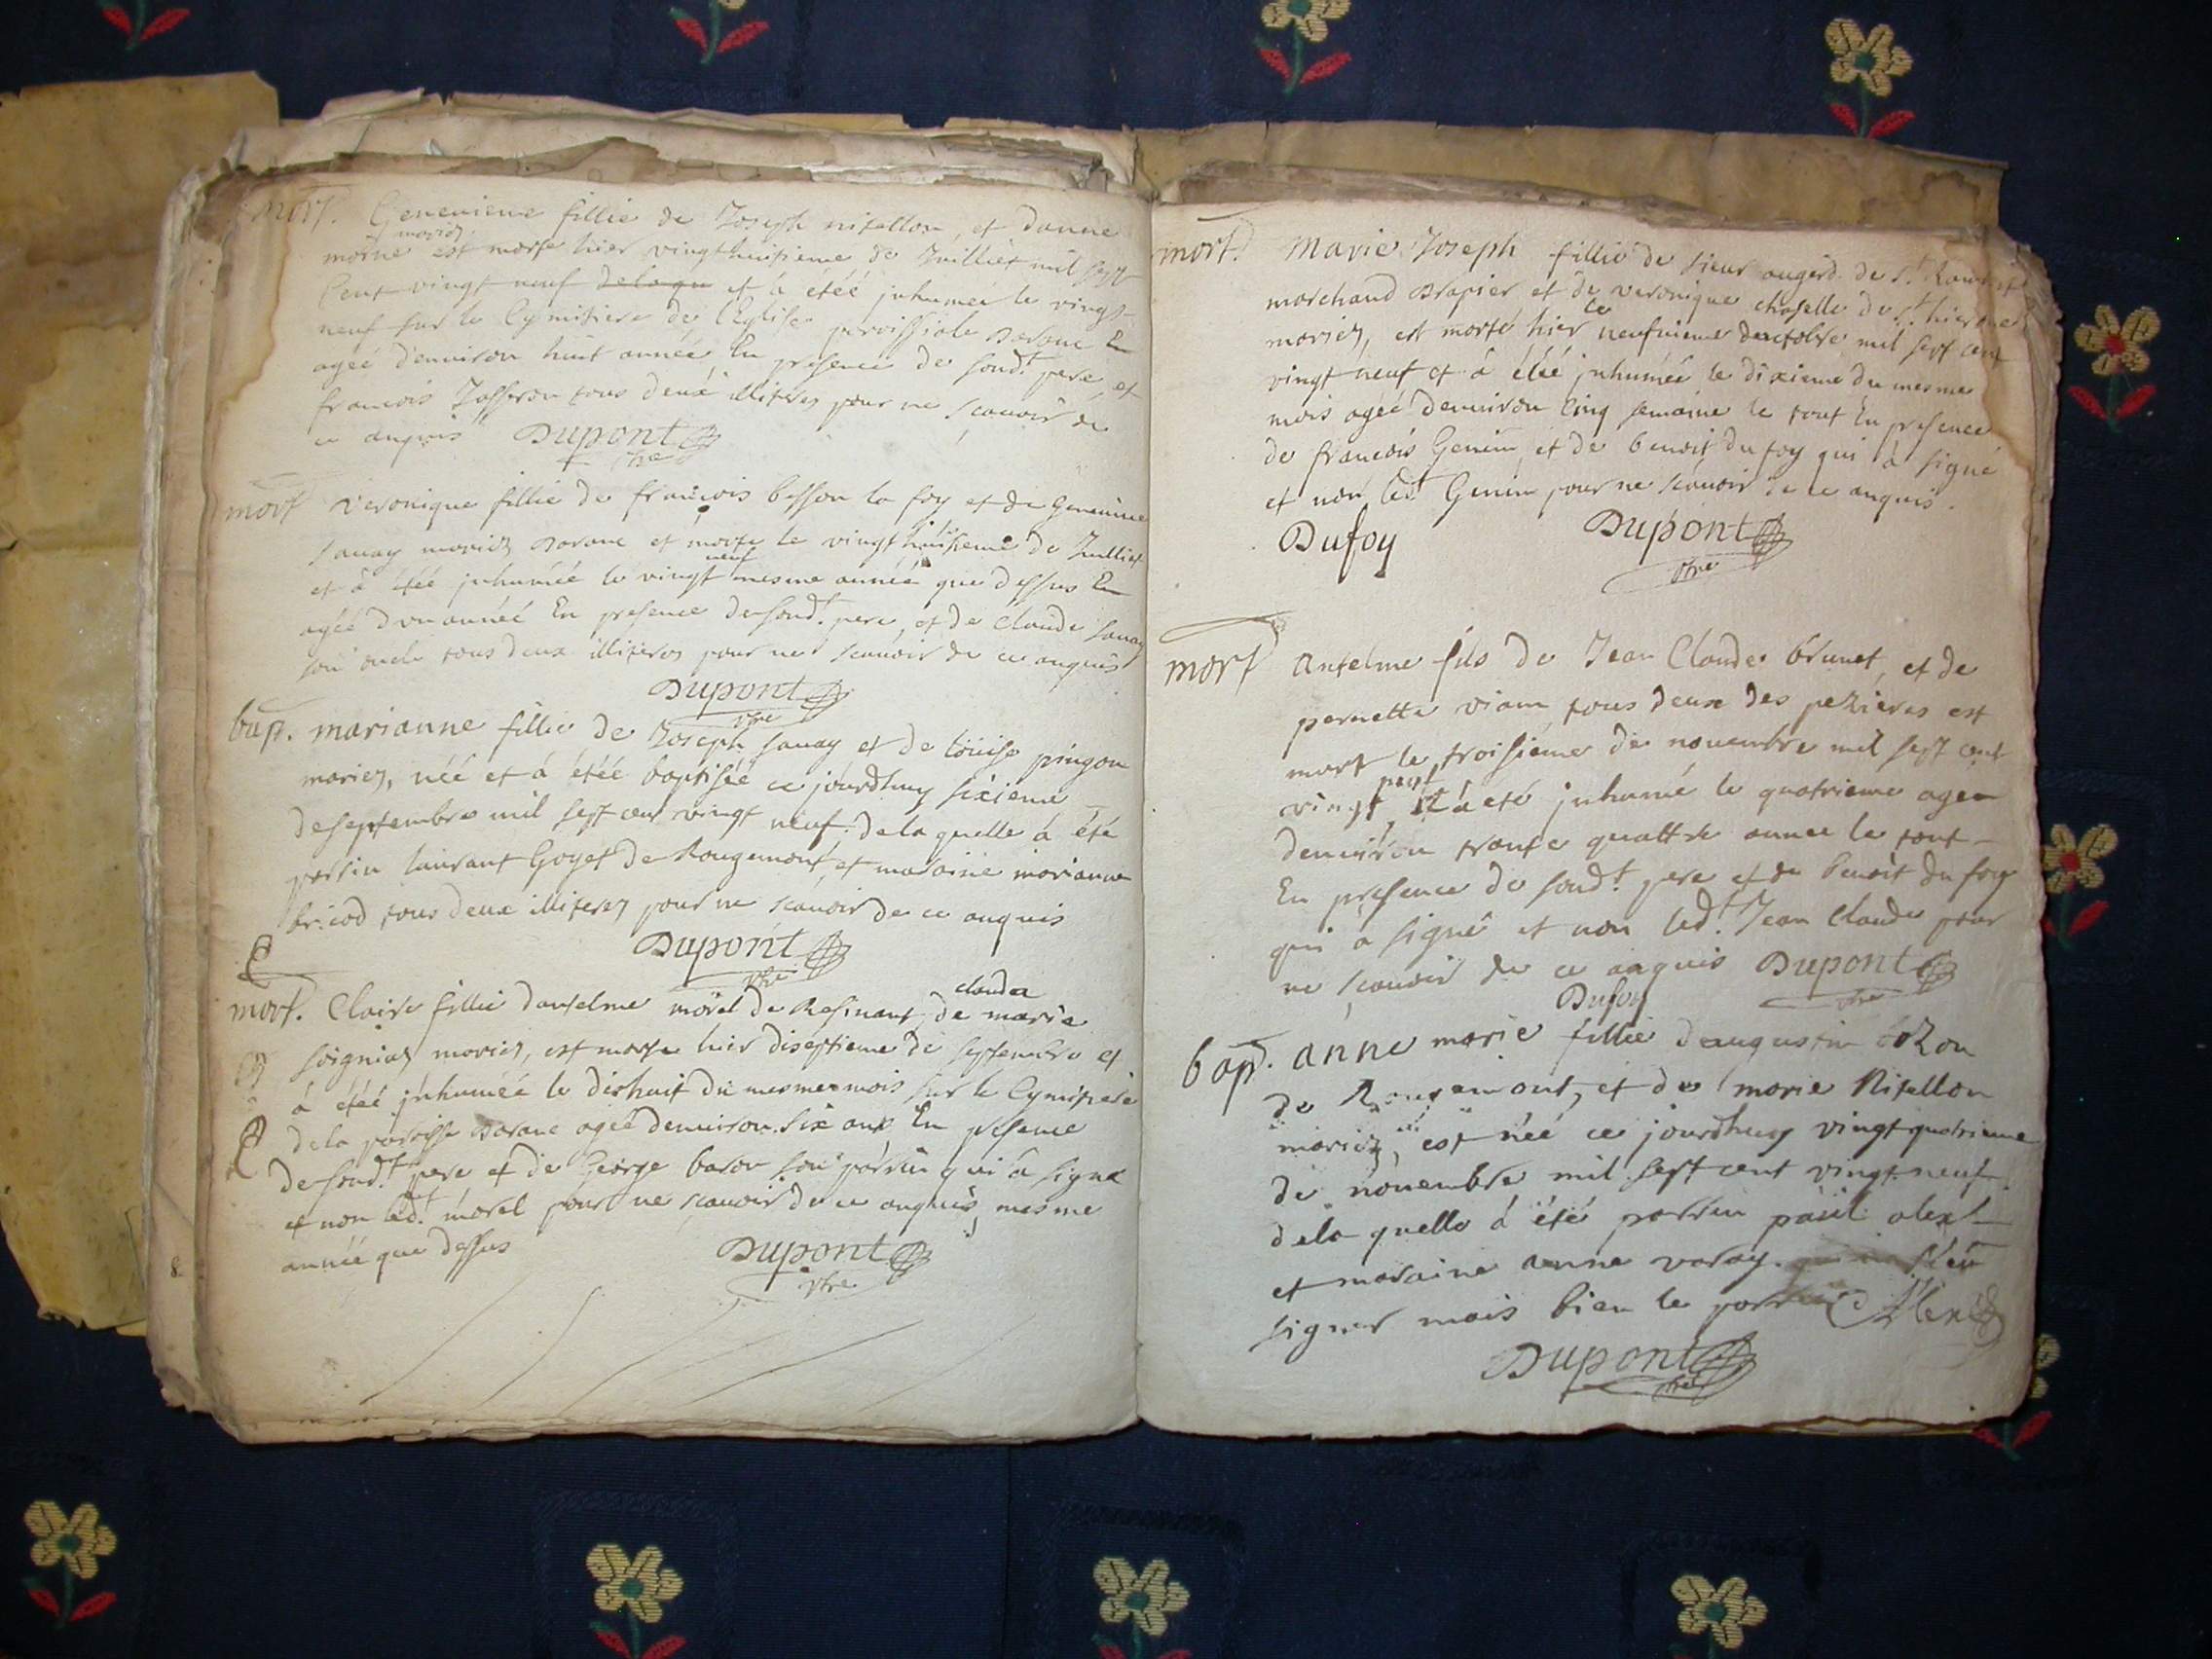 mort. Genevieve fillie de Joseph nitallon, et danne
mariez
morne est morte hier vingt huitieme de Juilliet mil sept
Cent vingt neuf et à étéé jnhumée le vingt
neuf sur le Cymitiere de l'Eglise paroissiale Daranc En
agéé denviron huit année En presence de sond.t pere, et
francois Josseron tous deux illiteres pour ne scavoir de
ce anquis Dupont
vre
mort veronique fillie de francois besson la foy et de Genevieve
savay mariez Daranc et morte le vingt huitieme de Julliet
neuf
et à étéé jnhuméé le vingt mesme année que dessus En
agéé dun annéé En presence de sond.t pere, et de Claude savay
son oncle tous deux illiteres pour ne scavoir de ce anquis
Dupont
vre
bap. marianne fillie de Joseph savay et de loüise pingon
mariez, néé et à étéé baptiséé ce jourdhuy sixieme
de septembre mil sept cent vingt neuf. de la quelle à été
parrin laurant Goyet de Rougemont, et maraine marianne
bricod tous deux illiterez pour ne scavoir de ce anquis
Dupont
vre
clauda
mort. Claire fillie dantelme morel de Resinant, de marie
soignias mariez, est morte hier diseptieme de septembre et
à étéé jnhuméé le dixhuit du mesme mois sur le Cymitiere
de la paroisse Daranc agéé denviron six ans En presence
de sond.t pere et de George baron son parrin qui à signé
et non led.t morel pour ne scavoir de ce anquis, mesme
année que dessus Dupont
vre
8
mort. Marie Joseph fillie de sieur augerd de S.t
marchand Drapier et de veronique chapelle de S.t hierome
le
mariez, est morte hier neufuieme doctobre mil sept cent
vingt neuf et à étéé jnhumée le dixieme du mesme
mois agéé denviron Cinq semaine le tout En presence
de francois Genin, et de benoit du foy qui à signé
et non led.t Genin pour ne scavoir de ce anquis.
Dufoy Dupont
vre
mort antelme fils de Jean Claude brunet, et de
pernette viam tous deux des pezieres est
mort le troisieme de novembre mil sept cent
neuf
vingt, et à eté jnhumé le quatrieme agee
denviron trante quattre annee le tout
En presence de sond.t pere et de benoit du foy
qui à signé et non led.t Jean Claude pour
ne scavoir de ce anquis Dupont
Dufoy vre
bap. anne marie fillie daugustin
de Rougemont, et de marie Nitallon
mariez, est néé ce jourdhuy vingt quatrieme
de novembre mil sept cent vingt neuf.
de la quelle à été parrin paül alex
et maraine anne varay.
signer mais bien le parrin Alex
Dupont
vre